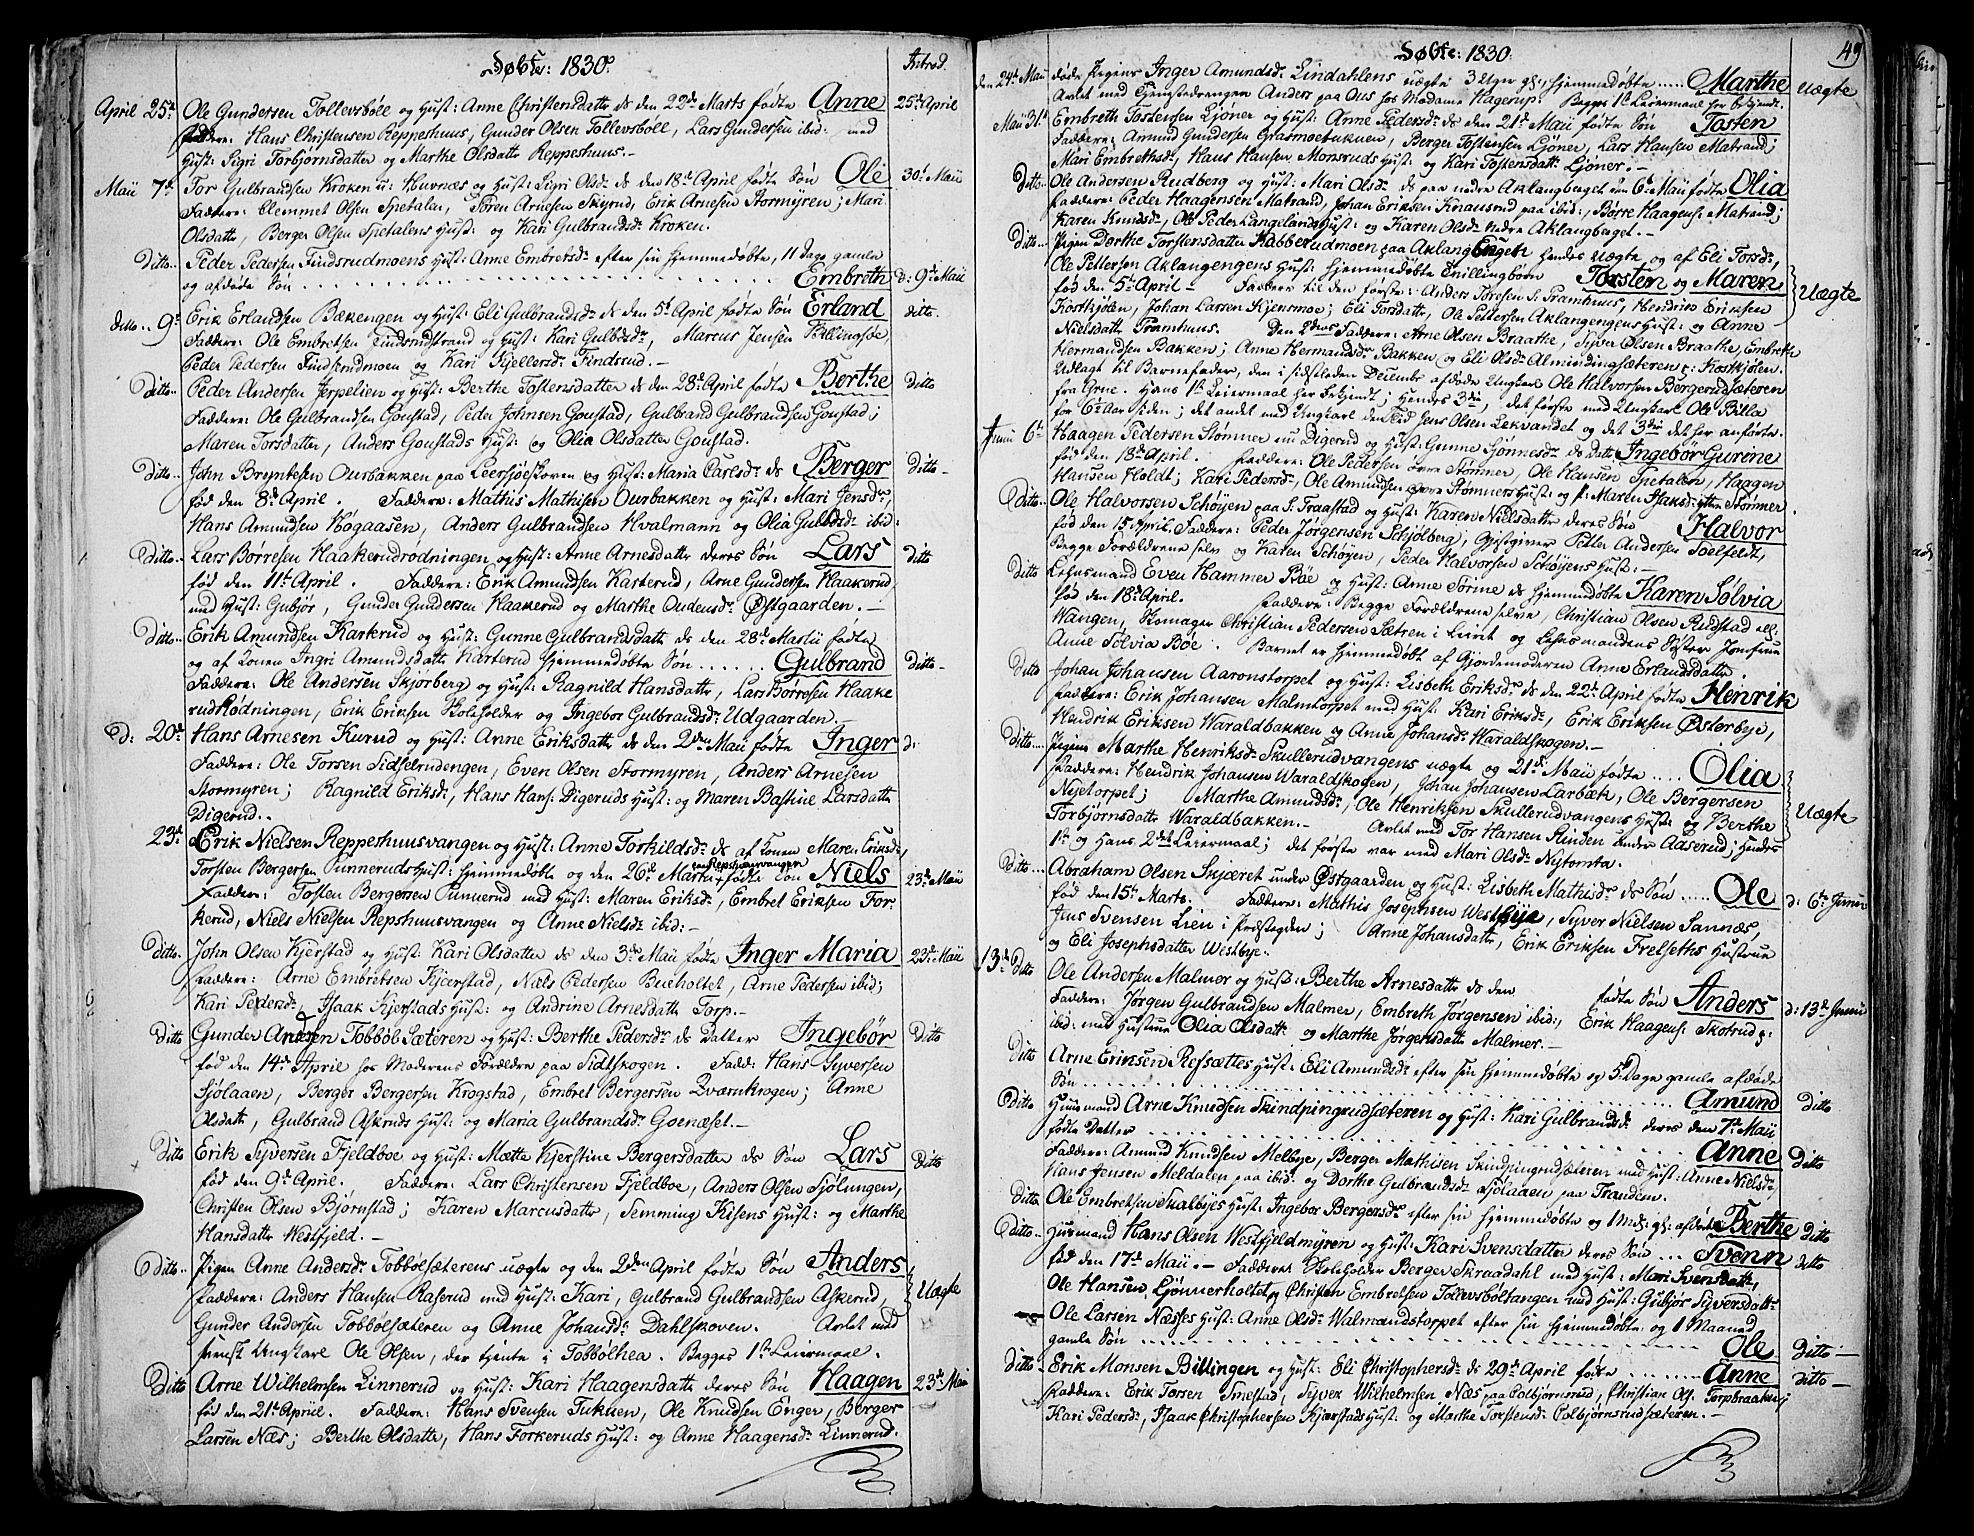 Døbte: 1830.
Introd.
April 25de Ole Gundersen Tollevsböle og Hust: Anne Christensdatte ds den 22de Marts födte Anne 25de April
Faddere: Hans Christensen Reppeshuus, Gunder Olsen Tollevsböll, Lars Gundersen ibid: med
Hust: Sigri Torbjörnsdatter og Marthe Olsdatte Reppeshuus.-
Maii 7de Tor Gulbrandsen Kroken u: Huvnæs og Hust: Sigri Olsdr ds den 18de April födte Sön Ole 30te Maii
Faddere: Clemmet Olsen Spetalen, Sören Arnesen Skyrud, Erik Arnesen Stormyren; Mari
Olsdatte, Berger Olsen Spetalens Hust: og Kari Gulbrandsdr Kroken.
Ditto.. Peder Pedersen Findsrudmoens Hust: Anne Embretsdr efter sin hjemmedöbte, 11 Dage gamle
og afdöde Sön . . . . . Embreth d: 9de Maii
ditto.. 9de Erik Erlandsen Bækengen og Hust: Eli Gulbrandsdr ds den 5te April födte Sön Erland ditto.
Faddere: Ole Embretsen Findsrudstrand og Hust: Kari Gulbdsdr, Marcus Jensen Billingsöe,
Peder Pedersen Findsrudmoen og Kari Kjellersdr Findsrud.-
Ditto.. Peder Andersen Jerpelien og Hust: Berthe Tostensdatter ds den 28de April födte Berthe Ditto
Faddere: Ole Gulbrandsen Goustad, Peder Johnsen Goustad, Gulbrand Gulbrandsen Goustad;
Maren Torsdatter, Anders Goustads Hust: og Olia Olsdatter Goustad.
Ditto John Bryntesen Ousbakken paa Leersjöeskoven og Hust: Maria Carlsdr ds Berger Ditto-
föd den 8de April. Faddere: Mathis Mathisen Ousbakken og Hust: Mari Jensdr,
Hans Amundsen Högaasen, Anders Gulbrandsen Kvalmann og Olia Gulbdsdr ibid:
Ditto.. Lars Börresen Haakerudrödningen og Hust: Anne Arnesdatte deres Sön Lars ditto
föd den 11te April. Faddere: Erik Amundsen Karterud, Arne Gundersen Haakerud
med Hust: Gubjör, Gunder Gundersen Haakerud og Marthe Oudensdr Østgaarden.-
Ditto.. Erik Amundsen Karterud og Hust: Gunne Gulbrandsdatte ds den 28de Martii födte
og af Konen Ingri Amundsdatte Karterud hjemmedöbte Sön . . . . Gulbrand ditto-
Faddere: Ole Andersen Skjörberg og Hust: Ragnild Hansdatte, Lars Börresen Haake
rudRödningen, Erik Eriksen Skoleholder og Ingebor Gulbrandsdr Udgaarden.-
D: 20de Hans Arnesen Kurud og Hust: Anne Eriksdatte ds den 2den Maii födte Inger d:
Faddere: Ole Torsen Sidselrudengen, Even Olsen Stormyren, Anders Arnesen
Stormyren; Ragnild Eriksdr, Hans Hans: Digeruds Hust: og Maren Bastine Larsdatte
Digerud..
23de Erik Nielsen Reppeshuusvangen og Hust: Anne Torkildsdr ds af Konen Maren Eriksdr,
Torsten Bergersen Punneruds Hust: hjemmedöbte og den 26de Martii födte Sön Niels 23de Maii
Faddere: Tosten Bergersen Punnerud med Hust: Maren Eriksdr, Embret Eriksen For-
kerud, Niels Nielsen Repshuusvangen og Anne Nielsdr ibid:-
Ditto John Olsen Kjerstad og Hust: Kari Olsdatter ds den 3de Maii födte Inger Maria 23de Maii
Faddere: Arne Embretsen Kjærstad, Niels Pedersen Bueholtet, Arne Pedersen ibid;
Kari Pedersdr, Isaak Kjerstads Hust: og Andrine Arnesdatte Torp.-
Ditto Gunder Andersen Tobböl Sæteren og Hust: Berthe Pedersdr ds Datter Ingebör Ditto
föd den 14de April hos Moderens Forældre paa Sidskogen. Fadd: Hans Syversen
Sjölaaen, Berger Bergersen Krogstad, Embret Bergersen Qværnkrogen; Anne
Olsdatte, Gulbrand Askruds Hust: og Maria Gulbrandsdr Goenæset.-
Ditto Erik Syversen Fjeldboe og Hust: Mætte Kjerstine Bergersdatter ds Sön Lars Ditto
föd den 9de April. Faddere: Lars Christensen Fjeldboe, Anders Olsen Sjölungen,
Christen Olsen Björnstad; Karen Marcusdatte, Semming Kisens Hust: og Marthe
Hansdatte Westfjeld.-
Ditto.. Pigen Anne Andersdr Tobbölsæterens uægte og den 2den April födte Sön Anders Uægte
Faddere: Anders Hansen Raserud med Hust: Kari, Gulbrand Gulbrandsen Askerud,
Gunder Andersen Tobbölsæteren og Anne Johansdr Dahlskoven. Avlet med
svensk Ungkarl Ole Olsen, der tjente i Tobbölhea. Begges 1ste Leiermaal.
Ditto Arne Wilhelmsen Linnerud og Hust: Kari Haagensdatte deres Sön Haagen 23de Maii
föd den 21de April. Faddere: Hans Svensen Tukuen, Ole Knudsen Enger, Berger
Larsen Næs; Berthe Olsdatte, Hans Forkeruds Hust: og Anne Haagensdr Linnerud.
Døbte: 1830.
49
den 24de Maii döde Pigens Inger Amundsdr Lindahlens uægte 3 Uger gl: hjemmedöbte..... Marthe uægte
Avlet med Tjenestedrengen Anders paa Ous hos Madame Hagerup. Begges 1ste Leiermaal her bekjendt.
Maii 31te Embreth Tostensen Ljöner og Hust: Anne Pedersdr ds den 21de Maii födte Sön Tosten
Faddere: Amund Gundersen Grasmoetukuen, Berger Tostensen Ljöner, Lars Hansen Matrand;
Mari Embrethsdr, Hans Hansen Monsruds Hust: og Kari Tostensdatte Ljöner.-
Ditto Ole Andersen Rudberg og Hust: Mari Olsdr ds paa nedre Aklangbaget den 6te Maii födte Olia
Faddere: Peder Haagensen Matrand, Johan Eriksen Knausrud paa ibid:, Börre Haagens: Matrand;
Karen Knudsdr, Ole Peder Langelands Hust: og Karen Olsdr nedre Aklangbaget.-
Ditto.. Pigen Dorthe Torstensdatte Kabberudmoen paa Aklangenget hendes Uægte og af Eli Torsdr,
Ole Pettersen Aklangengens Hust: hjemmedöbte Tvillingbörn Torsten og Maren Uægte
föd den 5te April- Faddere til den förste: Anders Toresen S: Tramhuus, Hendries Eriksen
Kostkjölen, Johan Larsen Kjensmoe; Eli Torsdatte, Ole Pettersen Aklangengens Hust: og Anne
Nielsdatte Tramhuus. Den 2dens Faddere: Arne Olsen Braathe, Syver Olsen Braathe, Embreth
Hermandsen Bakken; Anne Hermandsdr Bakken og Eli Olsdr Almindingsæteren p: Kostkjölen.
Udlagt til Barnefader, den i sidstleden Decembr afdöde Ungkarl Ole Halvorsen Börgerudsæteren
fra Grue. Hans 1ste Leiermaal her bekjendt; Hendes 3die, det förste med Ungkarl Ole Billa
for 6 Aar siden; det andet med Ungkarl den Tid Jens Olsen Lekvandet og det 3die det her anförte.
Junii 6te Haagen Pedersen Stömner nu Digerud og Hust: Gunne Sjönnesdr ds Datte Ingebör Gurine
föd den 18de April. Faddere: Ole Pedersen övre Stömner, Ole Hansen Spetalen, Haagen
Hansen Holdt; Kari Pedersdr, Ole Amundsen övre Stömners Hust: og P: Maren Isaksdr ytten Stömner.
Ditto.. Ole Halvorsen Schöyen paa S: Fraastad og Hust: Karen Nielsdatte deres Sön Halvor
föd den 15 April. Faddere: Peder Jörgensen Schjölberg, Gjestgiver Petter Andersen Toelfeldt,
Begge Forældrene selv og Karen Schöyen, Peder Halvorsen Schöyens Hust:-
Ditto Lehnsmand Even Hammer Böe og Hust: Anne Torine ds hjemmedöbte Karen Sölvia
föd den 18de April. Faddere: Begge Forældrene selve, Christian Olsen Rudstad ell:
Wangen, Skomager Christian Pedersen Sætren i Lurit og Lehnsmandens Söster Jomfrue
Anne Sölvia Böe. Barnet er hjemmedöbt af Gjordemoderen Anne Erlandsdatte.
Ditto Johan Johansen Aaronstorpet og Hust: Lisbeth Eriksdr ds den 22de April födte Henrik
Faddere: Erik Johansen Malmtorpet med Hust: Kari Eriksdr, Erik Eriksen Østerbye,
Hendrik Eriksen Waraldbakken og Anne Johansdr Waraldskogen.-
Ditto... Pigens Marthe Henriksdr Skullerudvangens uægte og 21de Maii födte .... Olia
Faddere: Hendrik Johansen Waraldskogen, Johan Johansen Larbæk, Ole Bergersen
Nyetorpet; Marthe Amundsdr, Ole Henriksen Skullerudvangens Hust: og Berthe Uægte
Torbjörnsdatte Waraldbakken.- Avlet med Tor Hansen Rinden under Aaserud; Hendes
1ste og Hans 2det Leiermaal; det förste var med Mari Olsdr Nytomta.
Ditto... Abraham Olsen Skjæret under Østgaarden og Hust: Lisbeth Mathisdr ds Sön ..... Ole d: 6te Junii
föd den 15de Marts. Faddere: Mathis Josephsen Westbye, Syver Nielsen Sannæs,
Jens Svensen Lien i Præstegden; Anne Johansdatte, Erik Eriksen Frelseths Hustrue
og Eli Josephsdatter Westbye.
13de Ditto Ole Andersen Malmer og Hust: Berthe Arnesdatte ds den födte Sön Anders d: 13de Junii
Faddere: Jörgen Gulbrandsen Malmer, Embreth Jörgensen ibid:, Erik Haagens: Skotrud p:
ibid: med Hustrue Olia Olsdatte og Marthe Jörgensdatte Malmer.-
Ditto Arne Eriksen Refsættes Hust: Eli Amundsdr efter sin hjemmedöbte og 5 Dage gamle afdöde
Sön . . . . . Amund
Ditto Huusmand Arne Knudsen Skindpingrudsæteren og Hust: Kari Gulbrandsdr deres den 7de Maii Ditto
födte Datter . . . . . Anne Ditto
Faddere: Amund Knudsen Melbye, Berger Mathisen Skindpingrudsæteren med Hust: Anne Nielsdr,
Hans Jensen Meldalen paa ibid: og Dorthe Gulbrandsdr Sjölaaen paa Tranden.
Ditto Ole Embretsen Skalbyes Hust: Ingebor Bergersdr efter sin hjemmedöbte og 1 Md: gl: afdöde Berthe Ditto
Ditto.. Huusmand Hans Olsen Westfjeldmyren og Hust: Kari Svensdatter deres Sön ... Svenn ditto
föd den 17de Maii.- Faddere: Skoleholder Berger Skraadahl med Hust: Mari Svensdatte,
Ole Hansen Ljönnerholtet og Christen Embretsen Tollevsböltangen med Hust: Gubjör Syversdatte
Ole Larsen Næsses Hust: Anne Olsdr Walmandstorpet efter sin hjemmedöbte og 1 Maaned
gamle Sön . . . . . Ole Ditto-
Ditto- Erik Monsen Billingen og Hust: Eli Christophersdr ds 29de April födte ..... Anne Ditto-
Faddere: Erik Torsen Smestad, Syver Wilhelmsen Næs paa Colbjörnsrud, Christian Ols: Torpbraaten;
Kari Pedersdr, Isaak Christophersen Kjærstads Hust: og Marthe Torstensdr Colbjörnsrudsæteren.-